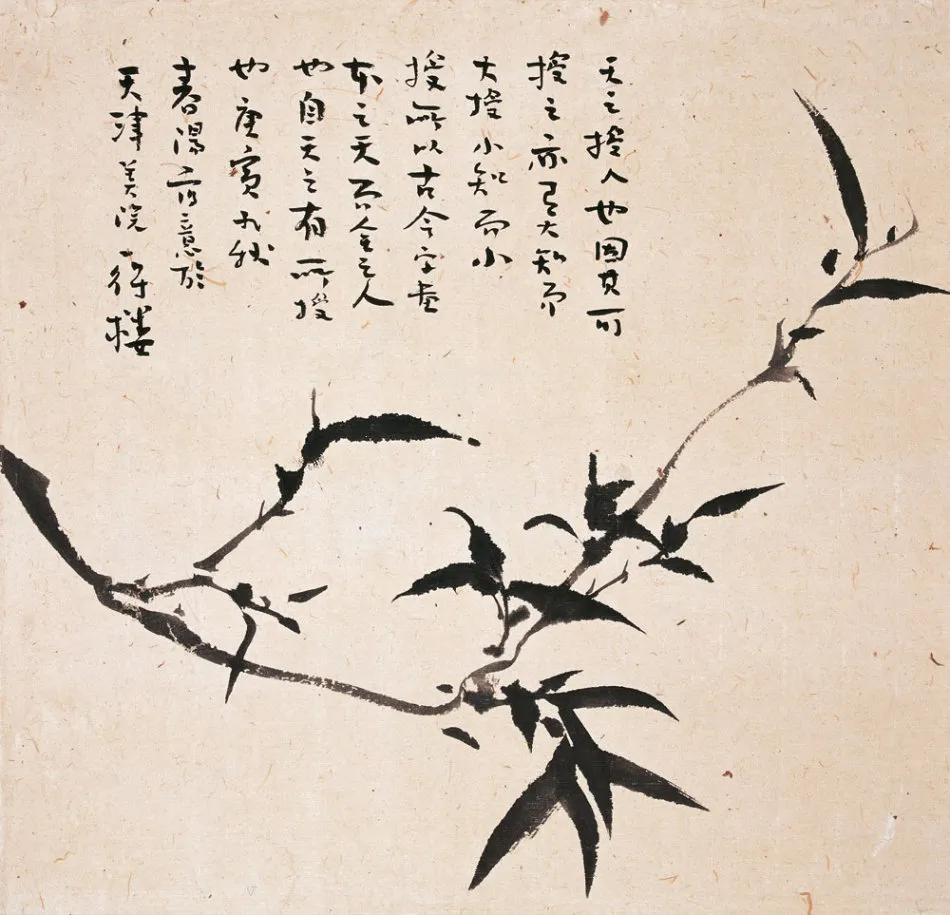 天之授人也因其可
授之亦大知而
大授小知而小
授所以古今字画
本之天而全之人
也自天之有所授
也庚寅秋
春陽写意於
天津美院一得楼